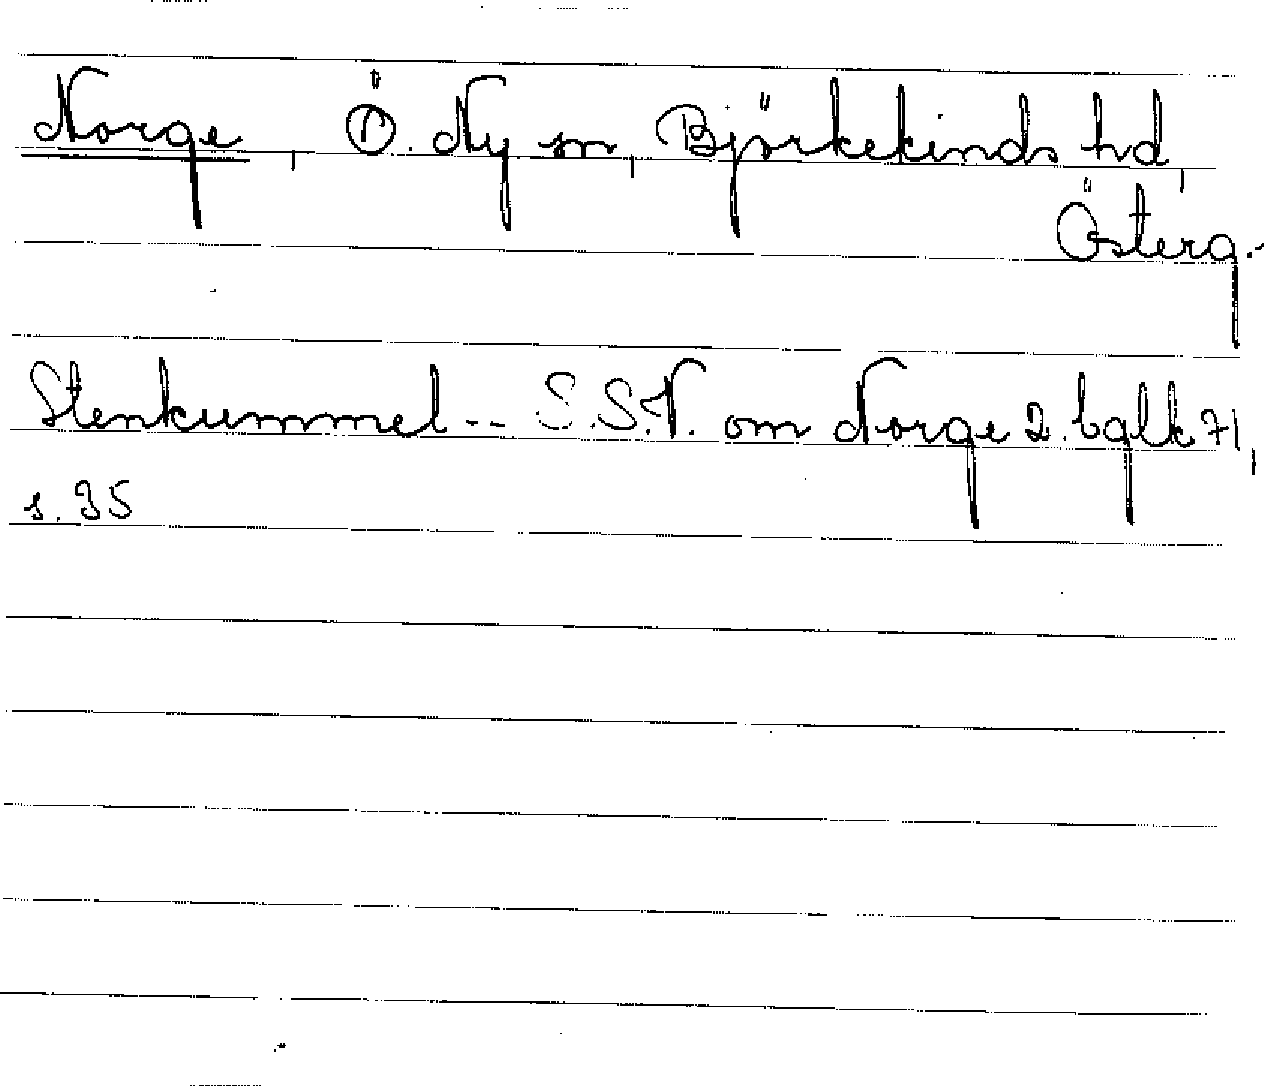 Norge, Ö. Ny sn, Björkekinds hd,
Österg.
Stenkummel -- S.S.V. om Norge 2. bglk 71,
s. 35